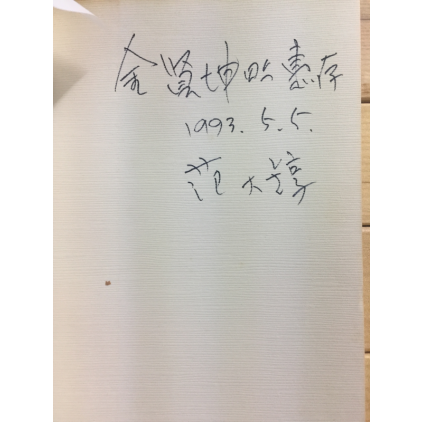 金賢坤 惠存
1993.5.5.
范大錞